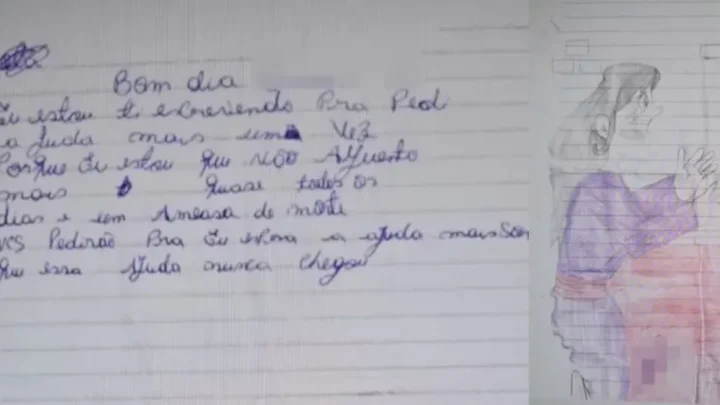 Bom dia
Eu estou ti escrevendo Pra Pedi
a Juda mais uma Vez
Porque Eu estou que não Aguento
mais quase todos os
dias e sem Ameasa de morte
vcs Pedirão Pra Eu espera a ajuda mais
que essa Ajuda nunca chegou